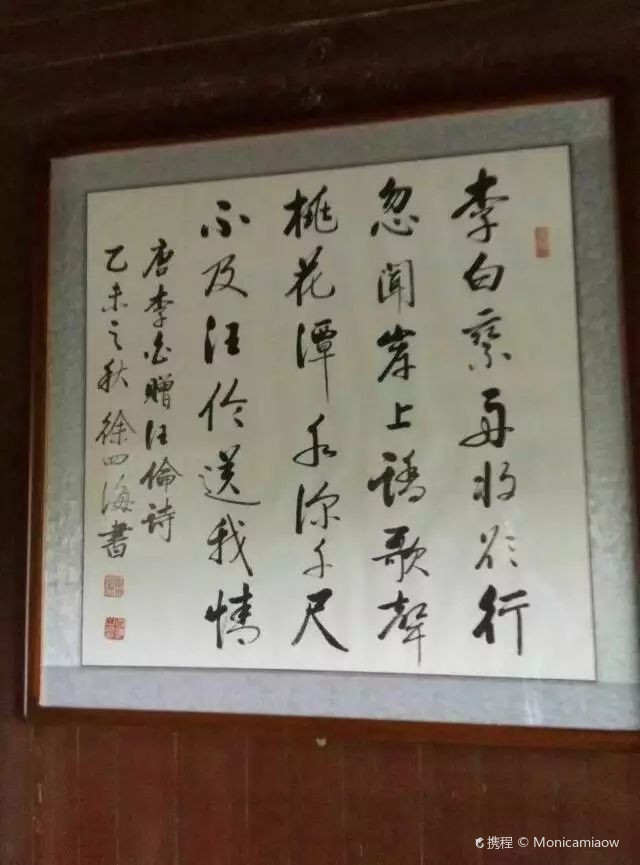 李白乘舟将欲行
忽聞岸上踏歌聲
桃花潭水深千尺
不及汪伦送我情
唐李白贈汪倫詩
乙未之秋徐四海書
携程 © Monicamiaow